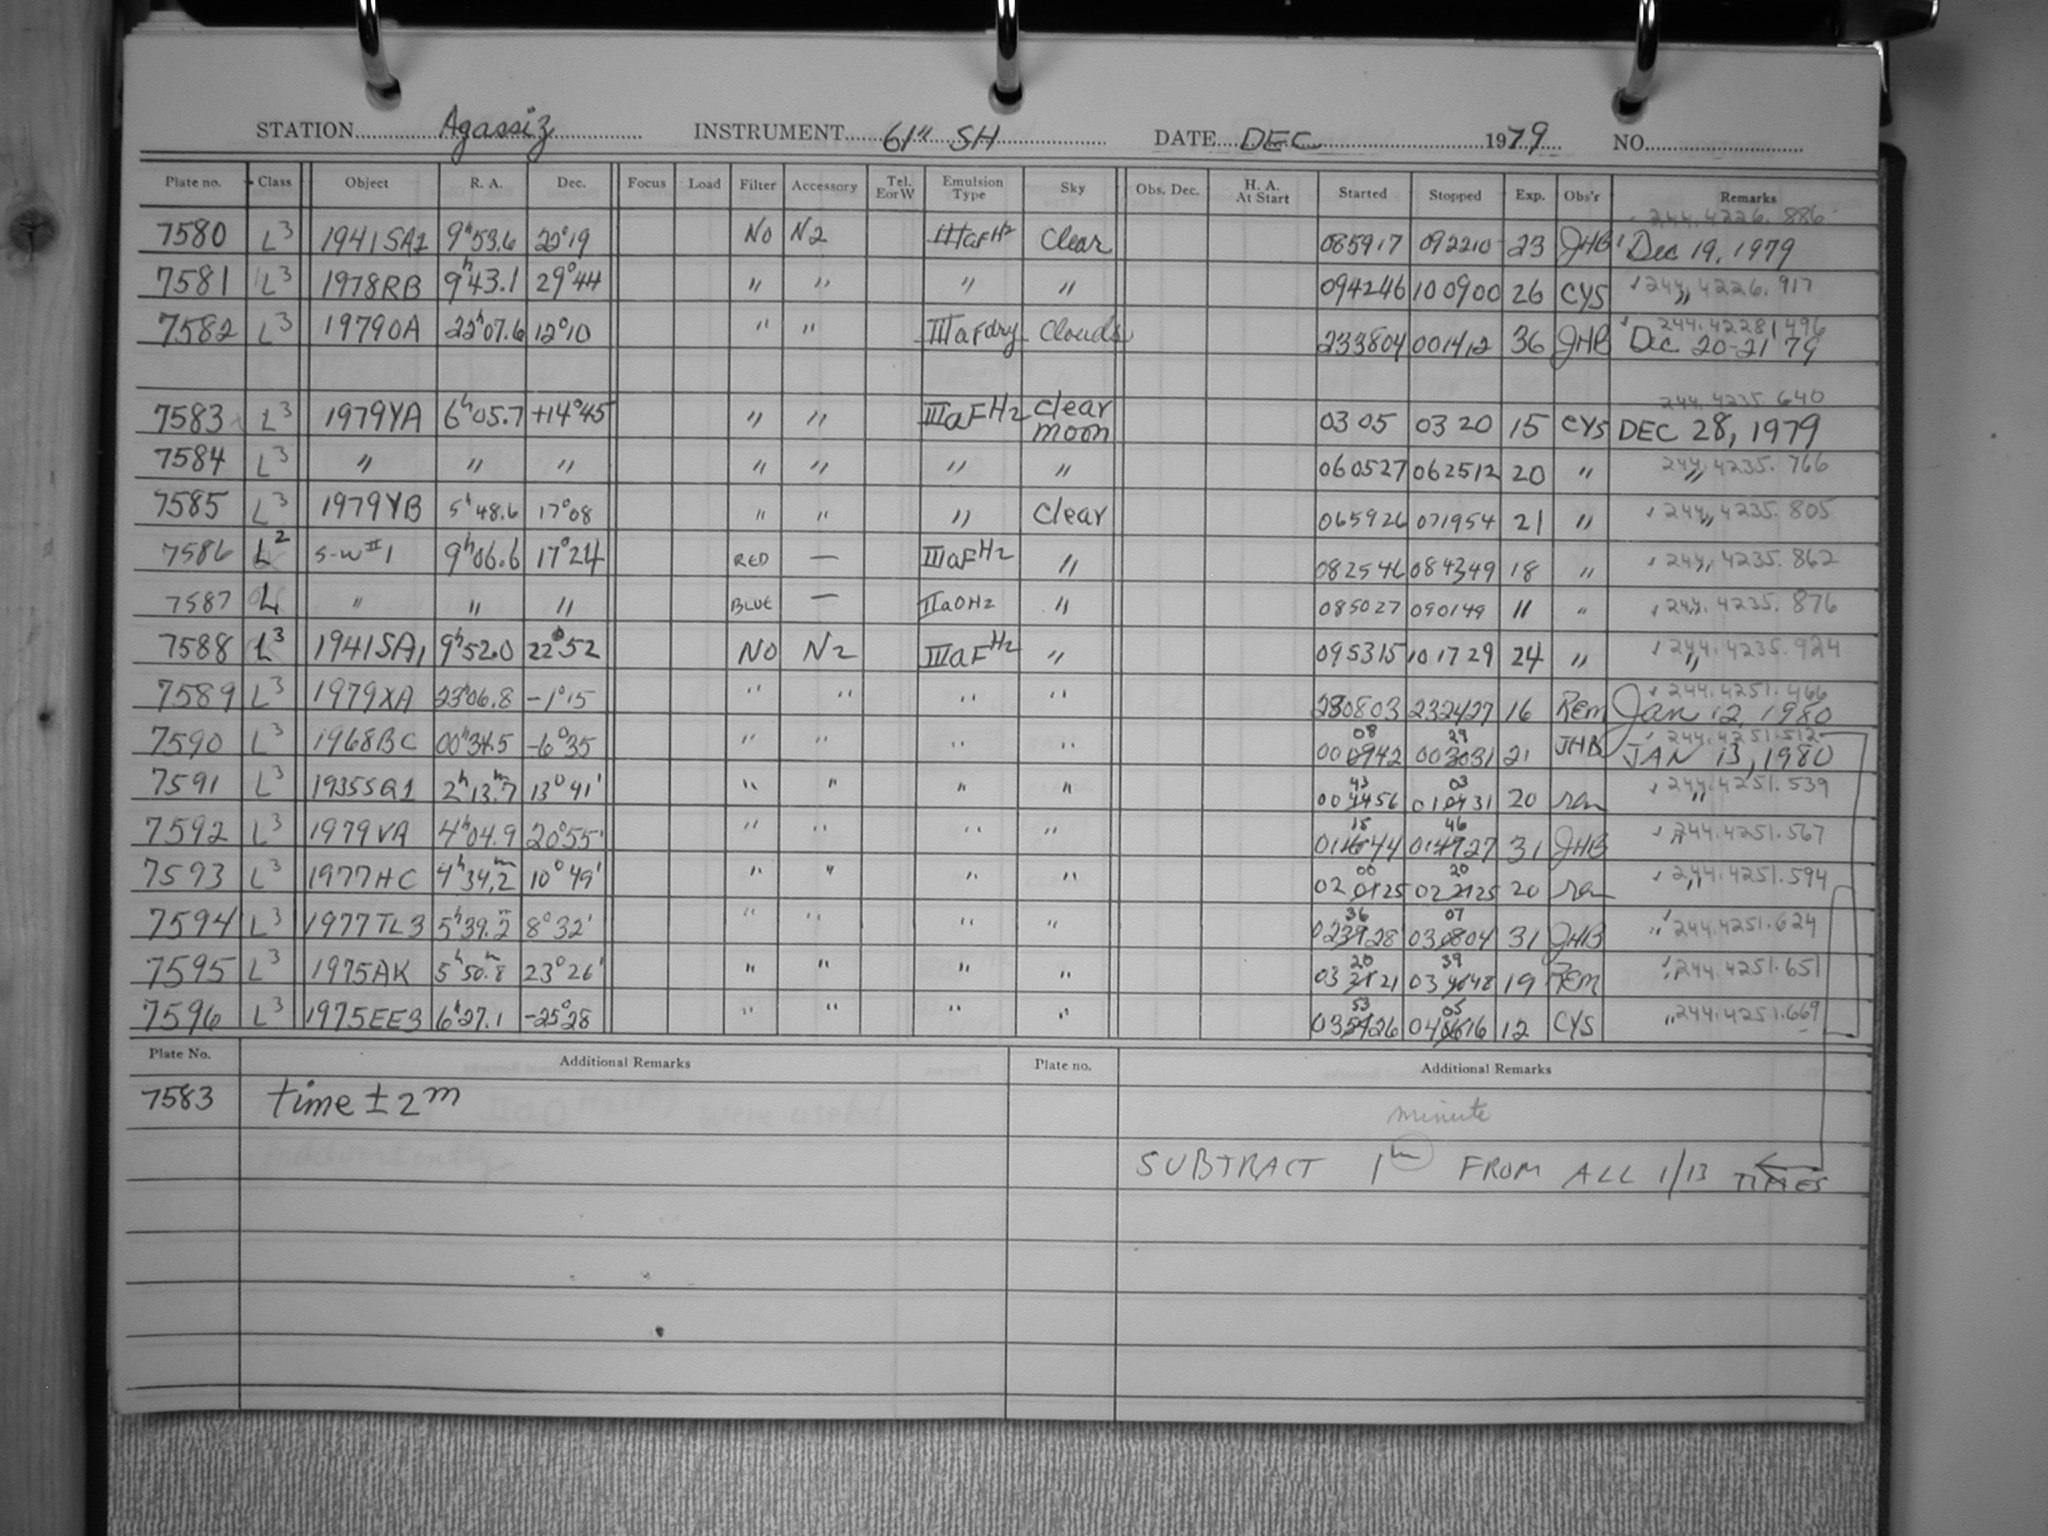 STATION Agassiz INSTRUMENT 61" SH DATE DEC 1979 NO.
Plate no. Class Object R. A. Dec. Focus Load Filter Accessory Tel. E or W Emulsion Type Sky Obs. Dec. H. A. At Start Started Stopped Exp. Obs'r Remarks
244.4226.886
7580 L3 1941SA1 9h53.6 22°19 No N2 IIIaFH2 Clear 085917 092210 23 JHB Dec 19, 1979
7581 L3 1978RB 9h43.1 29°44 " " " " 094246 100900 26 CYS " 244.4226.917
244.4228.496
7582 L3 1979OA 22h07.6 12°10 " " IIIaFdry Clouds 233804 001412 36 JHB Dec 20-21 79
244.4235.640
7583 L3 1979YA 6h05.7 +14°45 " " IIIaFH2 clear moon 0305 0320 15 CYS DEC 28, 1979
7584 L3 " " " " " " " 060527 062512 20 " " 244.4235.766
7585 L3 1979YB 5h48.6 17°08 " " " Clear 065926 071954 21 " " 244.4235.805
7586 L2 S-W II 1 9h06.6 17°24 RED — IIIaFH2 " 082546 084349 18 " " 244.4235.862
7587 L " " " BLUE — IIaOH2 " 085027 090149 11 " " 244.4235.876
7588 L3 1941SA1 9h52.0 22°52 NO N2 IIIaFH2 " 095315 101729 24 " " 244.4235.924
244.4251.466
7589 L3 1979XA 23h06.8 -1°15 " " " " 230803 232427 16 REM Jan 12, 1980
08 29 244.4251.512
7590 L3 1968BC 00h34.5 -6°35 " " " " 000942 003031 21 JHB JAN 13, 1980
43 03
7591 L3 1935SQ1 2h13m.7 13°41' " " " " 004456 010431 20 rem " 244.4251.539
15 46
7592 L3 1979VA 4h04.9 20°55' " " " " 011644 014727 31 JHB " 244.4251.567
00 20
7593 L3 1977HC 4h34m.2 10°49' " " " " 020125 022125 20 rem " 244.4251.594
36 07
7594 L3 1977TL3 5h39m.2 8°32' " " " " 023728 030804 31 JHB " 244.4251.624
20 39
7595 L3 1975AK 5h50m.8 23°26' " " " " 032121 034048 19 REM " 244.4251.651
53 05
7596 L3 1975EE3 6h27.1 -25°28 " " " " 035426 040616 12 CYS " 244.4251.669
Plate No. Additional Remarks Plate no. Additional Remarks
7583 time ± 2m
minute
SUBTRACT 1m FROM ALL 1/13 TIMES